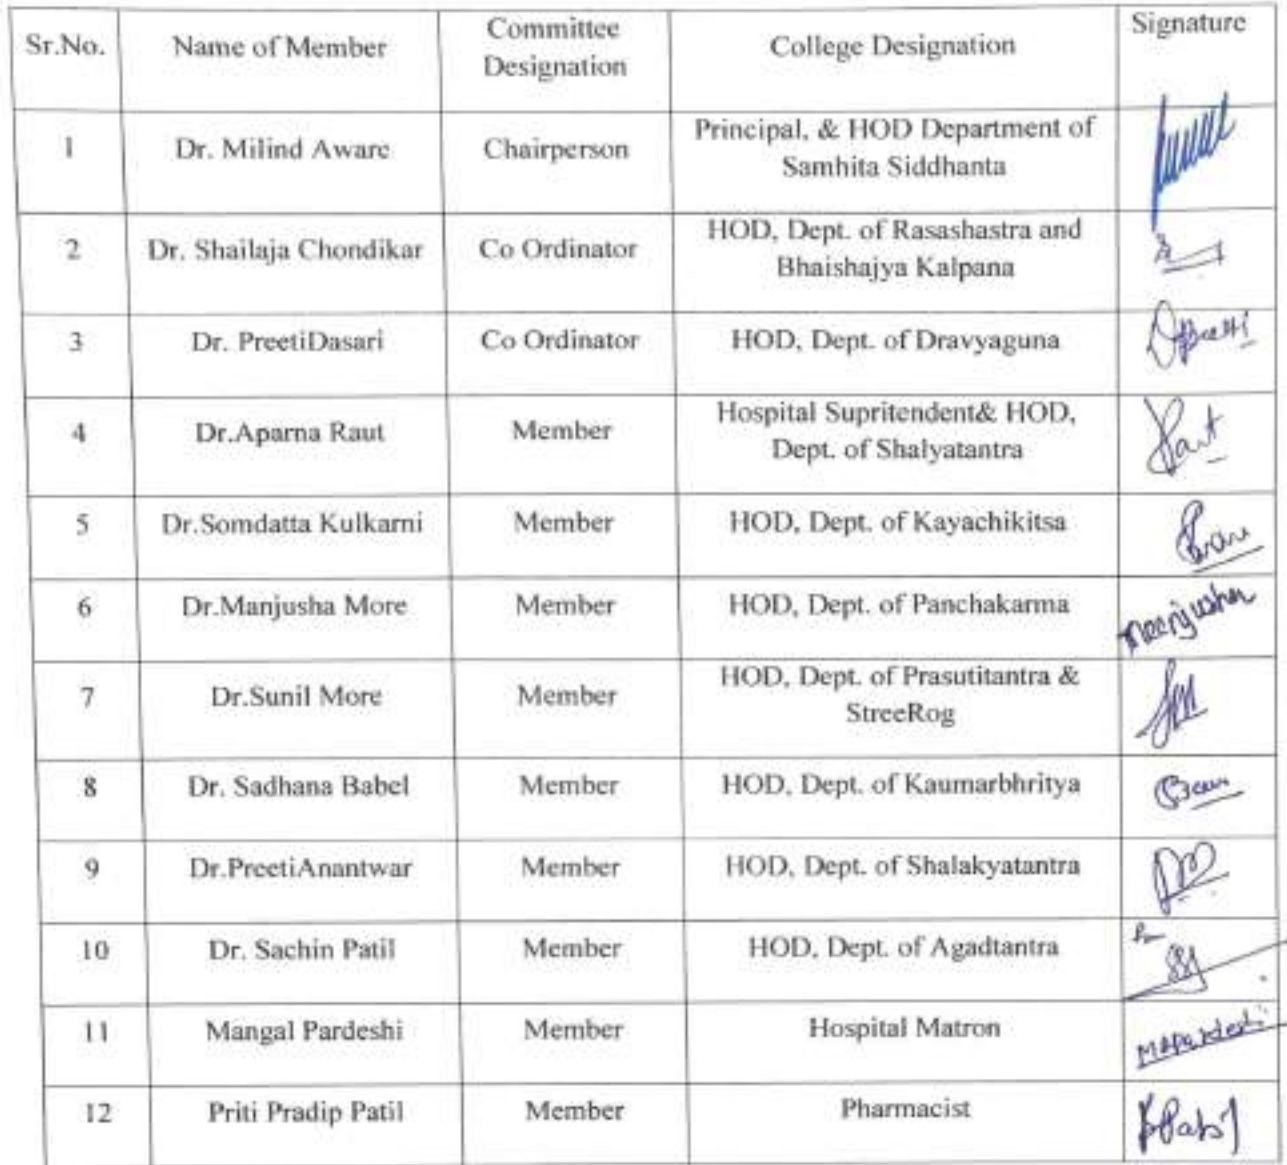 Sr.No. Name of Member Committee Designation College Designation Signature
1 Dr. Milind Aware Chairperson Principal, & HOD Department of
Samhita Siddhanta
2 Dr. Shailaja Chondikar Co Ordinator HOD, Dept. of Rasashastra and
Bhaishajya Kalpana
3 Dr. PreetiDasari Co Ordinator HOD, Dept. of Dravyaguna
4 Dr.Aparna Raut Member Hospital Supritendent& HOD,
Dept. of Shalyatantra
5 Dr.Somdatta Kulkarni Member HOD, Dept. of Kayachikitsa
6 Dr.Manjusha More Member HOD, Dept. of Panchakarma
7 Dr.Sunil More Member HOD, Dept. of Prasutitantra &
StreeRog
8 Dr. Sadhana Babel Member HOD, Dept. of Kaumarbhritya
9 Dr.PreetiAnantwar Member HOD, Dept. of Shalakyatantra
10 Dr. Sachin Patil Member HOD, Dept. of Agadtantra
11 Mangal Pardeshi Member Hospital Matron
12 Priti Pradip Patil Member Pharmacist